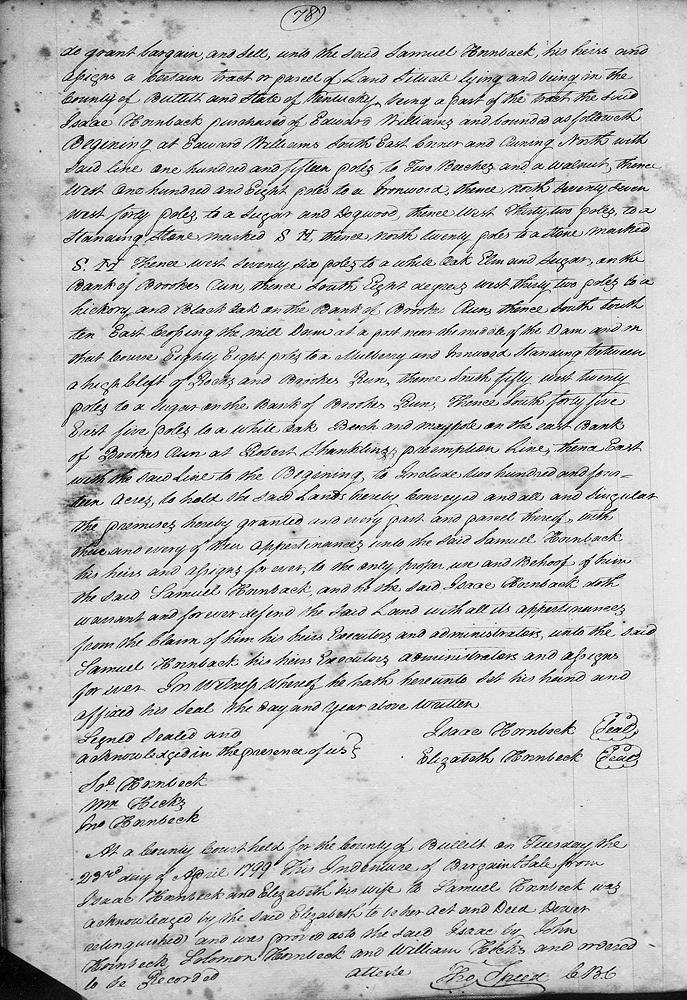 78
do grant bargain, and sell, unto the said Samuel Hornback, his heirs and
assigns a Certain tract or parcel of Land Situate lying and being in the
County of Bullitt and State of Kentucky, being a part of the tract the said
Isaac Hornback purchased of Edward Williams and bounded as followeth
Begining at Edward Williams South East Corner and Runing North with
said line one hundred and fifteen poles to Two Beeches and a walnut, thence
West One hundred and Eight poles to a Ironwood, thence North Seventy Seven
West forty poles to a Sugar and Dogwood, thence West Thirty two poles, to a
Standing Stone marked S H, thence North twenty poles to a Stone marked
S. H Thence west Seventy six poles to a white Oak Elm and Sugar, on the
Bank of Brookes Run, thence South Eight degrees west thirty two poles to a
hickory and Black Oak on the Bank of Brookes Run, thence South South
ten East Croping the mill Dam at a post near the middle of the Dam and on
that Course Eighty Eight poles to a Mulberry and Ironwood Standing between
a high Cleft of Rocks and Brookes Run, thence South fifty west twenty
poles to a Sugar on the Bank of Brookes Run, Thence South forty five
East five poles to a white oak Beech and on the east Bank
of Brookes Run at Robert Shanklins preemption Line, thence East
with the said Line to the Begining, to Include two hundred and four-
teen Acres, to hold the said Lands hereby Conveyed and all and Singular
the premises hereby granted and every part and parcel thereof, with
their and every of their appertinances unto the said Samuel Hornback
his heirs and assigns for ever, to the only proper use and Behoof of him
the said Samuel Hornback, and he the said Isaac Hornback doth
warrant and forever defend the said Land with all its appertinances
from the Claim of him his heirs Executors and administrators, unto the said
Samuel Hornback his heirs Executors administrators and assigns
for ever In Witness Whereof he hath hereunto Set his hand and
affixed his Seal the day and Year above Written
Signed Sealed and
acknowledged in the presence of us
Isaac Hornbeck Seal
Elizabeth Hornbeck Seal
Sol Hornbeck
Wm Hicks
Jno Hornbeck
At a County Court held for the County of Bullitt on Tuesday the
23rd day of April 1799 This Indenture of Bargain & Sale from
Isaac Hornbeck and Elizabeth his wife to Samuel Hornbeck was
acknowledged by the said Elizabeth to be her Act and Deed Dower
relinquished and was proved as to the said Isaac by John
Hornbeck Solomon Hornbeck and William Hicks and ordered
to be Recorded
atteste Tho Speed C B C